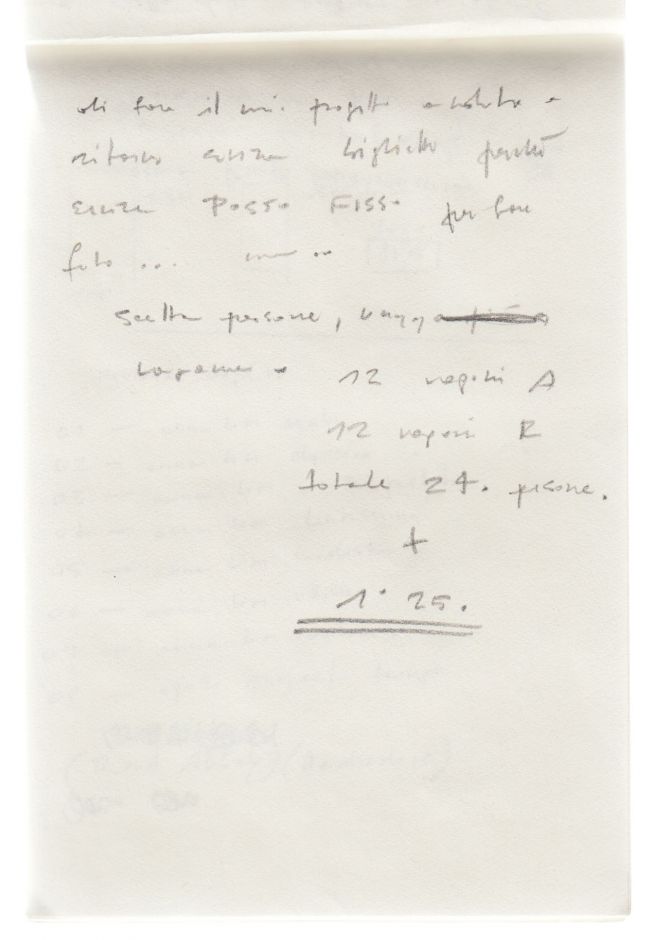 di fare il mio progetto andata e
ritorno senza biglietto perché
senza POSSO FISSO per fare
foto ...
scelta persone,
12 vagoni A
12 vagoni R
totale 24. persone.
+
1° 25.